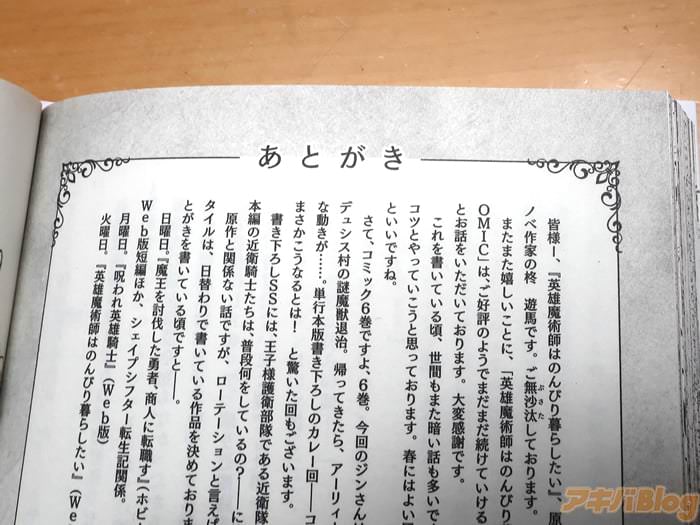 あとがき
皆様ー、『英雄魔術師はのんびり暮らしたい』、原
ノベ作家の柊　遊馬です。ご無沙汰しております。
ぶさた
またまた嬉しいことに、「英雄魔術師はのんびり
OMIC」は、ご好評のようでまだまだ続けていける
とお話をいただいております。大変感謝です。
これを書いている頃、世間もまた暗い話も多いで
コツとやっていこうと思っております。春にはよい
といいですね。
さて、コミック6巻ですよ、6巻。今回のジンさんは
デュシス村の謎魔獣退治。帰ってきたら、アーリィ
な動きが……。単行本版書き下ろしのカレー回――コ
まさかこうなるとは！　と驚いた回もございます。
書き下ろしSSには、王子様護衛部隊である近衛隊
本編の近衛騎士たちは、普段何をしているの？――に
原作と関係ない話ですが、ローテーションと言えば
タイルは、日替わりで書いている作品を決めておりま
とがきを書いている頃ですと――。
日曜日。『魔王を討伐した勇者、商人に転職す』ホビ
Web版短編ほか、シェイプシフター転生記関係。
月曜日。『呪われ英雄騎士』（Web版）
火曜日。『英雄魔術師はのんびり暮らしたい』（We
アキバBlog